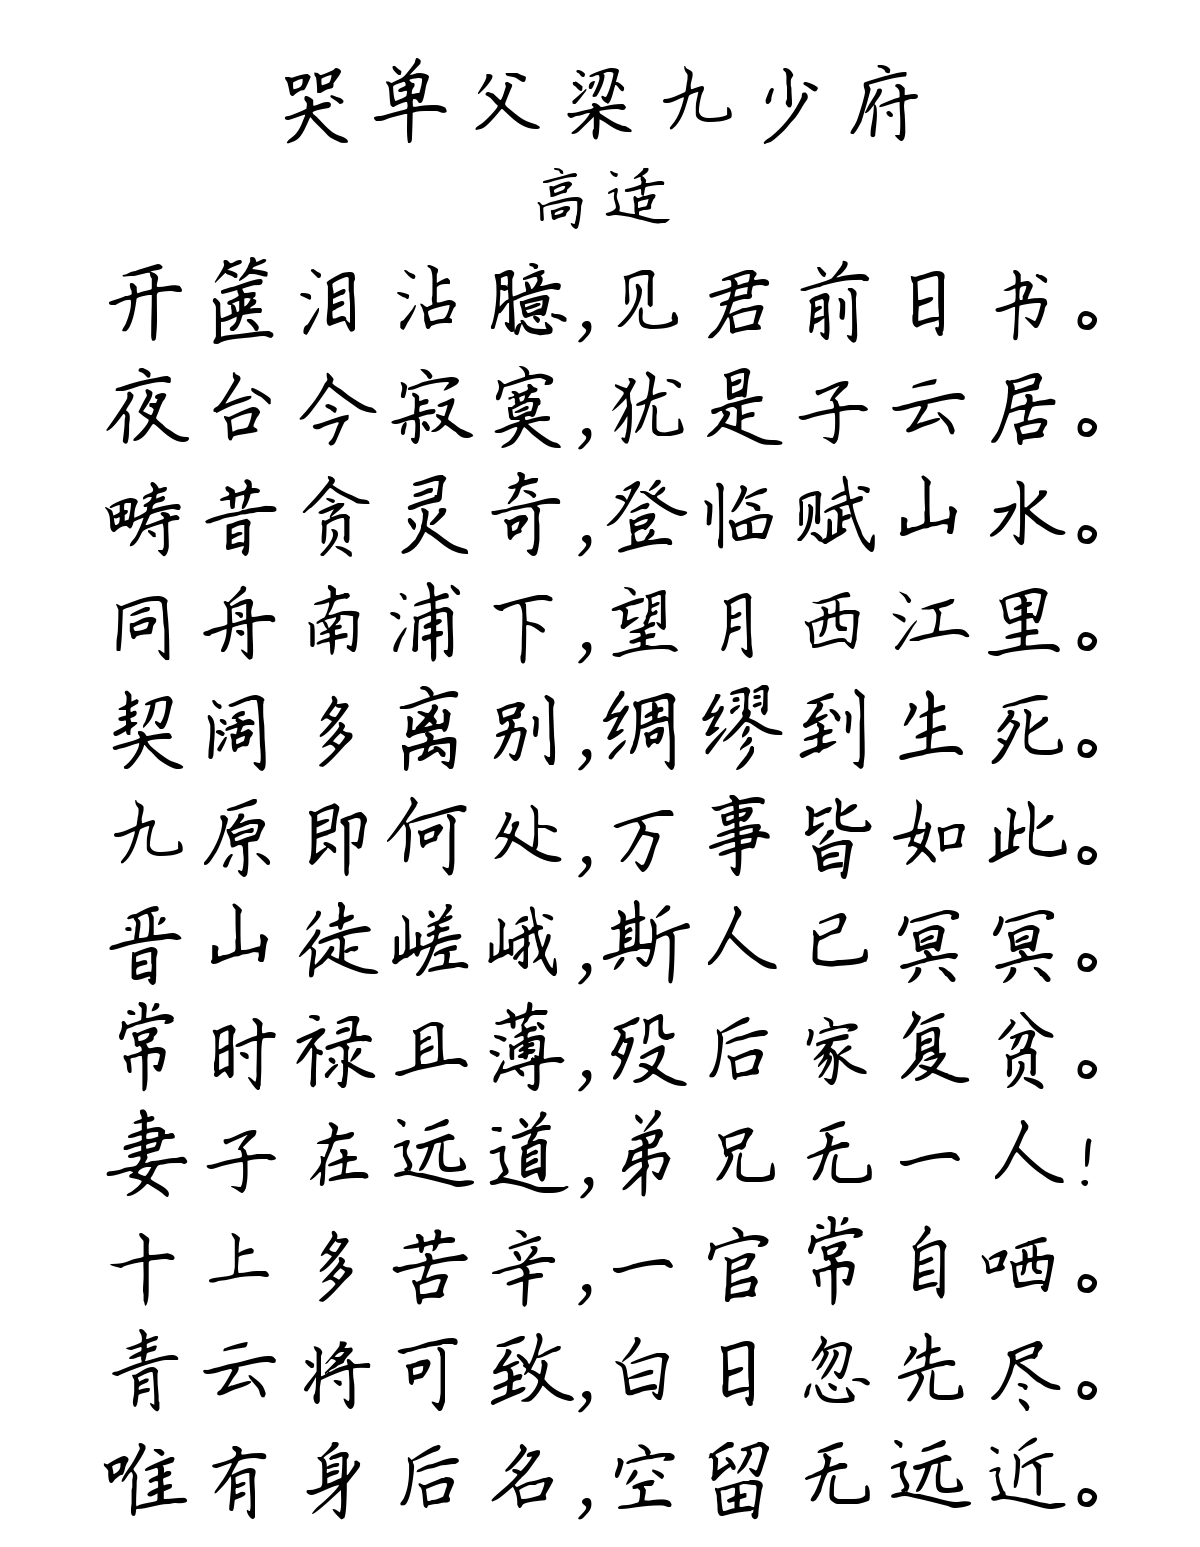 哭单父梁九少府
高适
开箧泪沾臆,见君前日书。
夜台今寂寞,犹是子云居。
畴昔贪灵奇,登临赋山水。
同舟南浦下,望月西江里。
契阔多离别,绸缪到生死。
九原即何处,万事皆如此。
晋山徒嵯峨,斯人已冥冥。
常时禄且薄,殁后家复贫。
妻子在远道,弟兄无一人!
十上多苦辛,一官常自哂。
青云将可致,白日忽先尽。
唯有身后名,空留无远近。